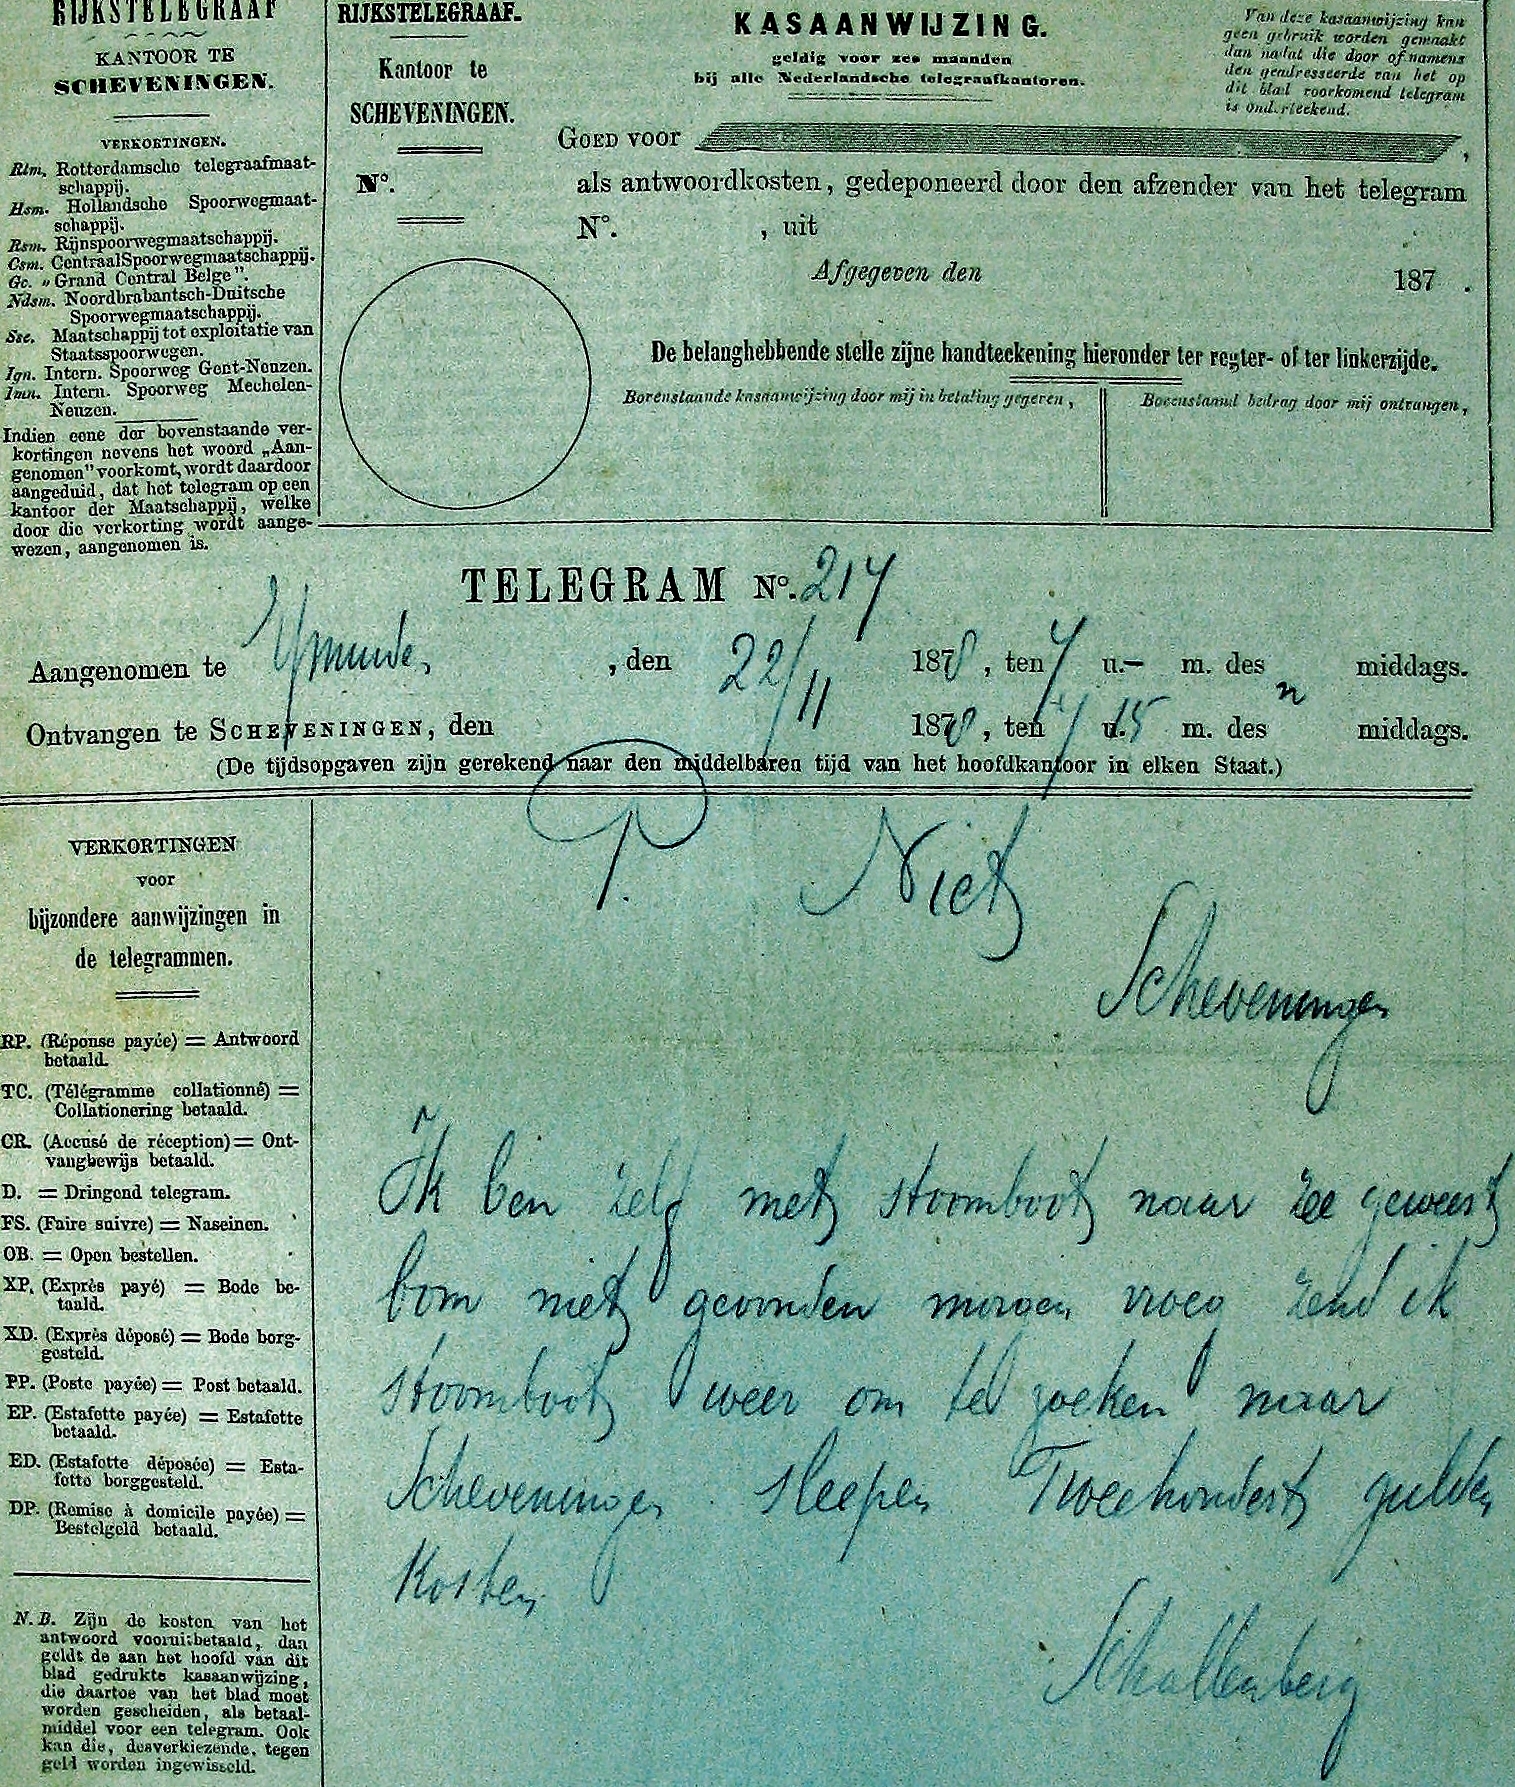 RIJKSTELEGRAAF
KANTOOR TE
SCHEVENINGEN.
VERKORTINGEN.
Rtm. Rotterdamsche telegraafmaat-
schappij.
Hsm. Hollandsche Spoorwegmaat-
schappij.
Rsm. Rijnspoorwegmaatschappij.
Csm. CentraalSpoorwegmaatschappij.
Gc. „Grand Central Belge".
Ndsm. Noordbrabantsch-Duitsche
Spoorwegmaatschappij.
Sse. Maatschappij tot exploitatie van
Staatsspoorwegen.
Ign. Intern. Spoorweg Gent-Neuzen.
Imn. Intern. Spoorweg Mechelen-
Neuzen.
Indien eene der bovenstaande ver-
kortingen nevens het woord „Aan-
genomen" voorkomt, wordt daardoor
aangeduid, dat het telegram op een
kantoor der Maatschappij, welke
door die verkorting wordt aange-
wezen, aangenomen is.
RIJKSTELEGRAAF.
Kantoor te
SCHEVENINGEN.
N°.
KASAANWIJZING.
geldig voor zes maanden
bij alle Nederlandsche telegraafkantoren.
Van deze kasaanwijzing kan
geen gebruik worden gemaakt
dan nadat die door of namens
den geadresseerde van het op
dit blad voorkomend telegram
is onderteekend.
GOED VOOR ,
als antwoordkosten, gedeponeerd door den afzender van het telegram
N°. , uit
Afgegeven den 187 .
De belanghebbende stelle zijne handteekening hieronder ter regter- of ter linkerzijde.
Bovenstaande kasaanwijzing door mij in betaling gegeven,
Bovenstaand bedrag door mij ontvangen,
TELEGRAM N°. 217
Aangenomen te Ymuide, , den 22/11 1878, ten 4 u.– m. des n middags.
Ontvangen te SCHEVENINGEN, den 1878, ten 4 u. 15 m. des middags.
(De tijdsopgaven zijn gerekend naar den middelbaren tijd van het hoofdkantoor in elken Staat.)
VERKORTINGEN
voor
bijzondere aanwijzingen in
de telegrammen.
RP. (Réponse payée) = Antwoord
betaald.
TC. (Télégramme collationné) =
Collationering betaald.
CR. (Accusé de réception) = Ont-
vangbewijs betaald.
D. = Dringend telegram.
FS. (Faire suivre) = Naseinen.
OB. = Open bestellen.
XP. (Exprès payé) = Bode be-
taald.
XD. (Exprès déposé) = Bode borg-
gesteld.
PP. (Poste payée) = Post betaald.
EP. (Estafette payée) = Estafette
betaald.
ED. (Estafette déposée) = Esta-
fette borggesteld.
DP. (Remise à domicile payée) =
Bestelgeld betaald.
N.B. Zijn de kosten van het
antwoord vooruitbetaald, dan
geldt de aan het hoofd van dit
blad gedrukte kasaanwijzing,
die daartoe van het blad moet
worden gescheiden, als betaal-
middel voor een telegram. Ook
kan die, desverkiezende, tegen
geld worden ingewisseld.
P. Niet
Scheveningen
Ik ben zelf met stoomboot naar zee geweest
bom niet gevonden morgen vroeg zend ik
stoomboot weer om te zoeken naar
Scheveningen sleepen Tweehondert gulden
Kosten
Schallenberg